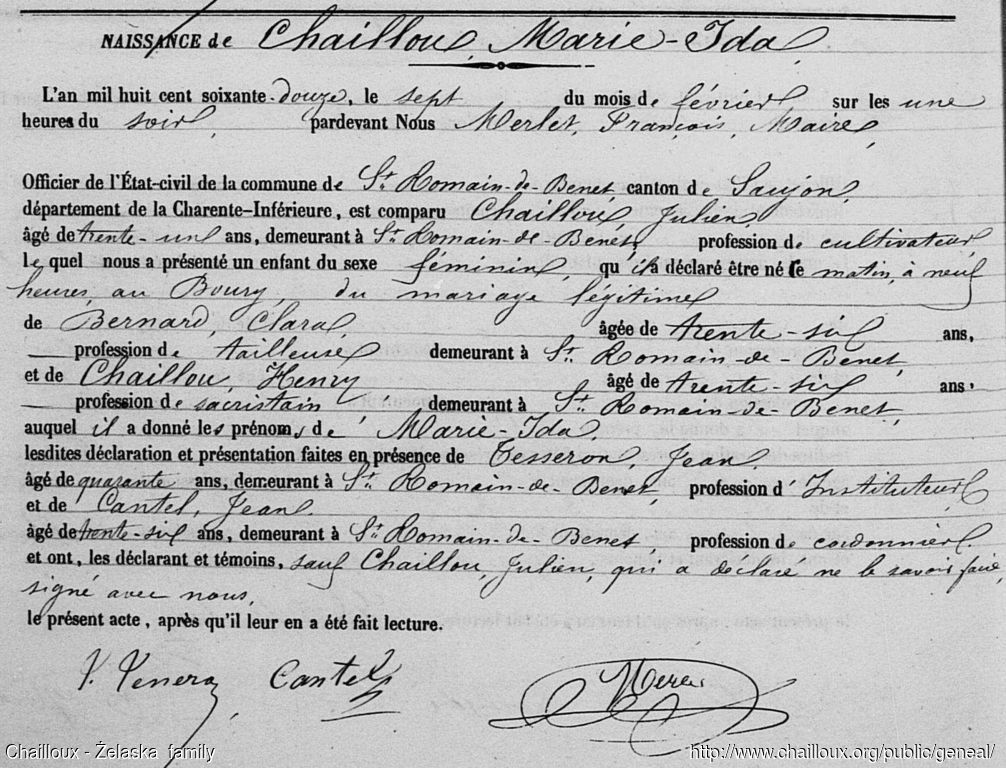 NAISSANCE de Chaillou, Marie-Ida,
L'an mil huit cent soixante-douze, le sept du mois de février, sur les une
heures du soir, pardevant Nous Merlet, François, Maire,
Officier de l'État-civil de la commune de St. Romain-de-Benet canton de Saujon,
département de la Charente-Inférieure, est comparu Chaillou, Julien,
âgé de trente-un ans, demeurant à St. Romain-de-Benet, profession de cultivateur
le quel nous a présenté un enfant du sexe féminin, qu'il a déclaré être né ce matin, à neuf
heures, au Bourg, du mariage légitime
de Bernard, Clara, âgée de trente-six ans,
profession de tailleuse demeurant à St. Romain-de-Benet,
et de Chaillou, Henry âgé de trente-six ans,
profession de sacristain demeurant à St. Romain-de-Benet,
auquel il a donné les prénoms de Marie-Ida.
lesdites déclaration et présentation faites en présence de Tesseron, Jean,
âgé de quarante ans, demeurant à St. Romain-de-Benet, profession d'Instituteur,
et de Cantel, Jean
âgé de trente-six ans, demeurant à St. Romain-de-Benet, profession de cordonnier.
et ont, les déclarant et témoins, sauf Chaillou, Julien, qui a déclaré ne le savoir faire,
signé avec nous,
le présent acte, après qu'il leur en a été fait lecture.
Cantel
Chailloux - Želaska family http://www.chailloux.org/public/geneal/